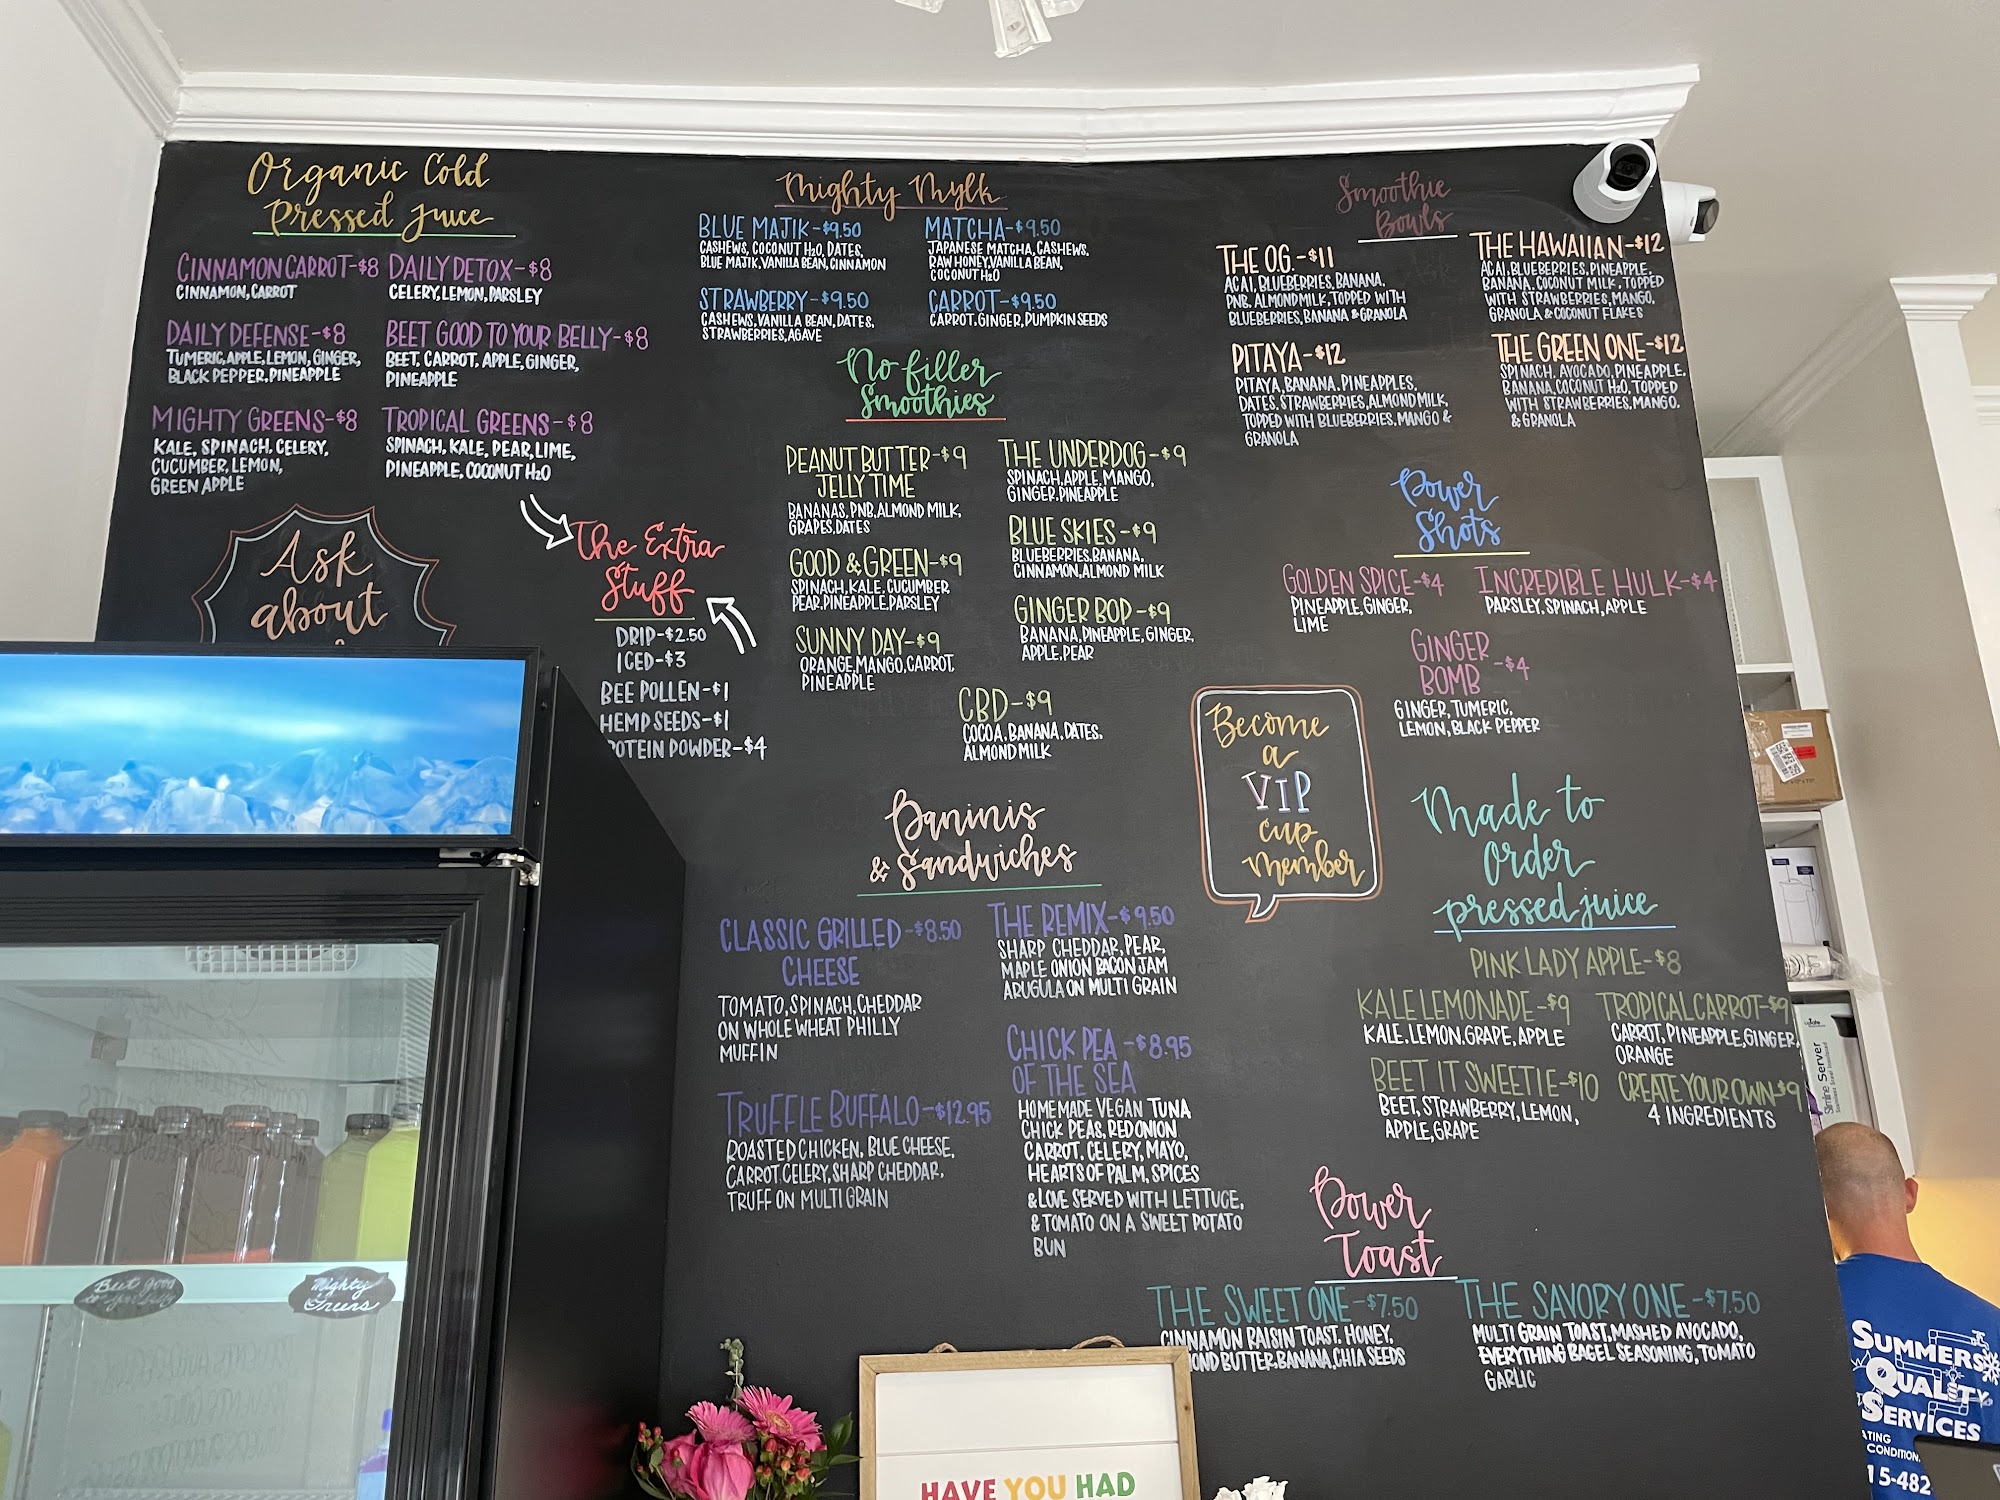 Organic Cold
Pressed Juice
CINNAMON CARROT-$8
CINNAMON, CARROT
DAILY DETOX-$8
CELERY, LEMON, PARSLEY
DAILY DEFENSE-$8
TUMERIC, APPLE, LEMON, GINGER,
BLACK PEPPER, PINEAPPLE
BEET GOOD TO YOUR BELLY-$8
BEET, CARROT, APPLE, GINGER,
PINEAPPLE
MIGHTY GREENS-$8
KALE, SPINACH, CELERY,
CUCUMBER, LEMON,
GREEN APPLE
TROPICAL GREENS-$8
SPINACH, KALE, PEAR, LIME,
PINEAPPLE, COCONUT H2O
Ask
about
The Extra
Stuff
DRIP-$2.50
ICED-$3
BEE POLLEN-$1
HEMP SEEDS-$1
OTEIN POWDER-$4
Mighty Mylk
BLUE MAJIK-$9.50
CASHEWS, COCONUT H2O, DATES,
BLUE MAJIK, VANILLA BEAN, CINNAMON
MATCHA-$9.50
JAPANESE MATCHA, CASHEWS,
RAW HONEY, VANILLA BEAN,
COCONUT H2O
STRAWBERRY-$9.50
CASHEWS, VANILLA BEAN, DATES,
STRAWBERRIES, AGAVE
CARROT-$9.50
CARROT, GINGER, PUMPKIN SEEDS
No filler
Smoothies
PEANUT BUTTER-$9
JELLY TIME
BANANAS, PNB, ALMOND MILK,
GRAPES, DATES
THE UNDERDOG-$9
SPINACH, APPLE, MANGO,
GINGER, PINEAPPLE
BLUE SKIES-$9
BLUEBERRIES, BANANA,
CINNAMON, ALMOND MILK
GOOD & GREEN-$9
SPINACH, KALE, CUCUMBER
PEAR, PINEAPPLE, PARSLEY
GINGER BOP-$9
BANANA, PINEAPPLE, GINGER,
APPLE, PEAR
SUNNY DAY-$9
ORANGE, MANGO, CARROT,
PINEAPPLE
CBD-$9
COCOA, BANANA, DATES,
ALMOND MILK
Paninis
& Sandwiches
CLASSIC GRILLED-$8.50
CHEESE
TOMATO, SPINACH, CHEDDAR
ON WHOLE WHEAT PHILLY
MUFFIN
THE REMIX-$9.50
SHARP CHEDDAR, PEAR,
MAPLE ONION BACON JAM
ARUGULA ON MULTI GRAIN
TRUFFLE BUFFALO-$12.95
ROASTED CHICKEN, BLUE CHEESE,
CARROT, CELERY, SHARP CHEDDAR,
TRUFF ON MULTI GRAIN
CHICK PEA-$8.95
OF THE SEA
HOMEMADE VEGAN TUNA
CHICK PEAS, RED ONION
CARROT, CELERY, MAYO,
HEARTS OF PALM, SPICES
& LOVE SERVED WITH LETTUCE,
& TOMATO ON A SWEET POTATO
BUN
Smoothie
Bowls
THE O.G.-$11
ACAI, BLUEBERRIES, BANANA,
PNB, ALMOND MILK, TOPPED WITH
BLUEBERRIES, BANANA & GRANOLA
THE HAWAIIAN-$12
ACAI, BLUEBERRIES, PINEAPPLE,
BANANA, COCONUT MILK, TOPPED
WITH STRAWBERRIES, MANGO,
GRANOLA & COCONUT FLAKES
PITAYA-$12
PITAYA, BANANA, PINEAPPLES,
DATES, STRAWBERRIES, ALMOND MILK,
TOPPED WITH BLUEBERRIES, MANGO &
GRANOLA
THE GREEN ONE-$12
SPINACH, AVOCADO, PINEAPPLE,
BANANA, COCONUT H2O, TOPPED
WITH STRAWBERRIES, MANGO,
& GRANOLA
Power
Shots
GOLDEN SPICE-$4
PINEAPPLE, GINGER,
LIME
INCREDIBLE HULK-$4
PARSLEY, SPINACH, APPLE
GINGER
BOMB-$4
GINGER, TUMERIC,
LEMON, BLACK PEPPER
Become
a
VIP
cup
member
Made to
Order
pressed juice
PINK LADY APPLE-$8
KALE LEMONADE-$9
KALE, LEMON, GRAPE, APPLE
TROPICAL CARROT-$9
CARROT, PINEAPPLE, GINGER,
ORANGE
BEET IT SWEETIE-$10
BEET, STRAWBERRY, LEMON,
APPLE, GRAPE
CREATE YOUR OWN-$9
4 INGREDIENTS
Power
Toast
THE SWEET ONE-$7.50
CINNAMON RAISIN TOAST, HONEY,
OND BUTTER, BANANA, CHIA SEEDS
THE SAVORY ONE-$7.50
MULTI GRAIN TOAST, MASHED AVOCADO,
EVERYTHING BAGEL SEASONING, TOMATO
GARLIC
Beet good
to your belly
Mighty
Greens
HAVE YOU HAD
Slimline Server
SUMMERS
QUALITY
SERVICES
ATING
CONDITION
15-482